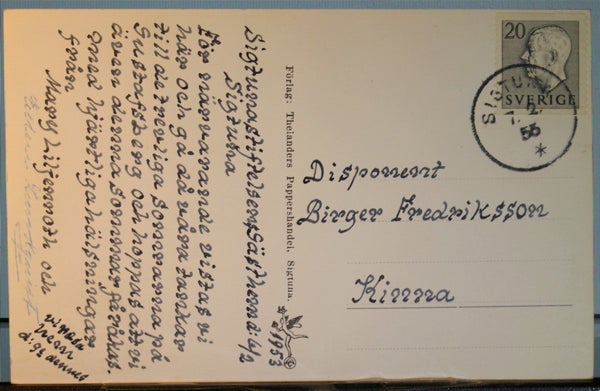 Sigtunastiftelsens Gästhem d: 4/2
Sigtuna 1953
För närvarande vistas vi
här och gå då våra tankar
till de trevliga somrarna på
Gustafsberg och hoppas att vi
även denna sommar få råkas.
med hjärtliga hälsningar
från
Mary Liljenroth och
vi resa
hem
d: 9s dennes
Förlag: Thelanders Pappershandel, Sigtuna.
20
SVERIGE
SIGTUNA
53
Disponent
Birger Fredriksson
Kinna